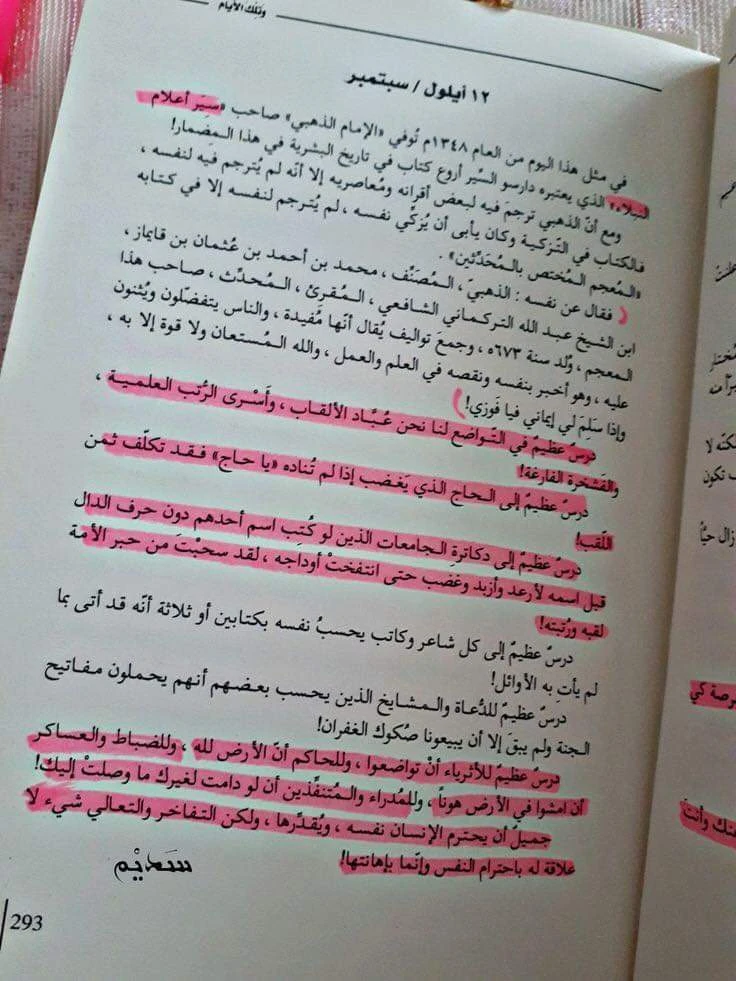 وتلك الأيام
١٢ أيلول / سبتمبر
في مثل هذا اليوم من العام ١٣٤٨م تُوفي «الإمام الذهبي» صاحب «سِيَر أعلام
النبلاء» الذي يعتبره دارسو السِّير أروع كتاب في تاريخ البشرية في هذا المِضمار!
ومع أنّ الذهبي ترجمَ فيه لبعض أقرانه ومُعاصريه إلا أنّه لم يُترجم فيه لنفسه ،
فالكتاب في التّزكية وكان يأبى أن يُزكّي نفسه ، لم يُترجم لنفسه إلا في كتابه
«المُعجم المُختص بالمُحَدِّثين» .
فقال عن نفسه : الذهبيّ ، المُصَنِّف ، محمد بن أحمد بن عُثمان بن قايماز ،
ابن الشيخ عبد الله التركماني الشافعي ، المُقرئ ، المُحدِّث ، صاحب هذا
المعجم ، وُلد سنة ٦٧٣ه ، وجمع تواليف يُقال أنّها مُفيدة ، والناس يتفضّلون ويُثنون
عليه ، وهو أخبر بنفسه ونقصه في العلم والعمل ، والله المُستعان ولا قوة إلا به ،
وإذا سَلِمَ لي إيماني فيا فَوزي!
درس عظيمٌ في التّواضع لنا نحن عُبَّاد الألقاب ، وأَسْرى الرُّتب العلمية ،
والفَشخرة الفارغة!
درسٌ عظيمٌ إلى الحاج الذي يَغضب إذا لم تُناده «يا حاج» فقد تكلّف ثمن
اللّقب!
درسٌ عظيمٌ إلى دكاترةِ الجامعات الذين لو كُتب اسم أحدهم دون حرف الدال
قبل اسمه لأرعد وأزبد وغضب حتى انتفختْ أوداجه ، لقد سحبْتَ من حبر الأمّة
لقبه ورُتبته!
درسٌ عظيمٌ إلى كل شاعر وكاتب يحسبُ نفسه بكتابين أو ثلاثة أنّه قد أتى بما
لم يأتِ به الأوائل!
درسٌ عظيمٌ للدُّعاة والمشايخ الذين يحسب بعضهم أنهم يحملون مفاتيح
الجنة ولم يبقَ إلا أن يبيعونا صُكوك الغفران!
درسٌ عظيمٌ للأثرياء أنْ تواضعوا ، وللحاكم أنّ الأرض لله ، وللضباط والعساكر
أن امشوا في الأرض هوناً ، وللمُدراء والمُتنفِّذين أن لو دامت لغيرك ما وصلتْ إليك!
جميلٌ أن يحترم الإنسان نفسه ، ويُقدِّرها ، ولكن التفاخر والتعالي شيء لا
علاقة له باحترام النفس وإنّما بإهانتها!
سَدِيْم
293